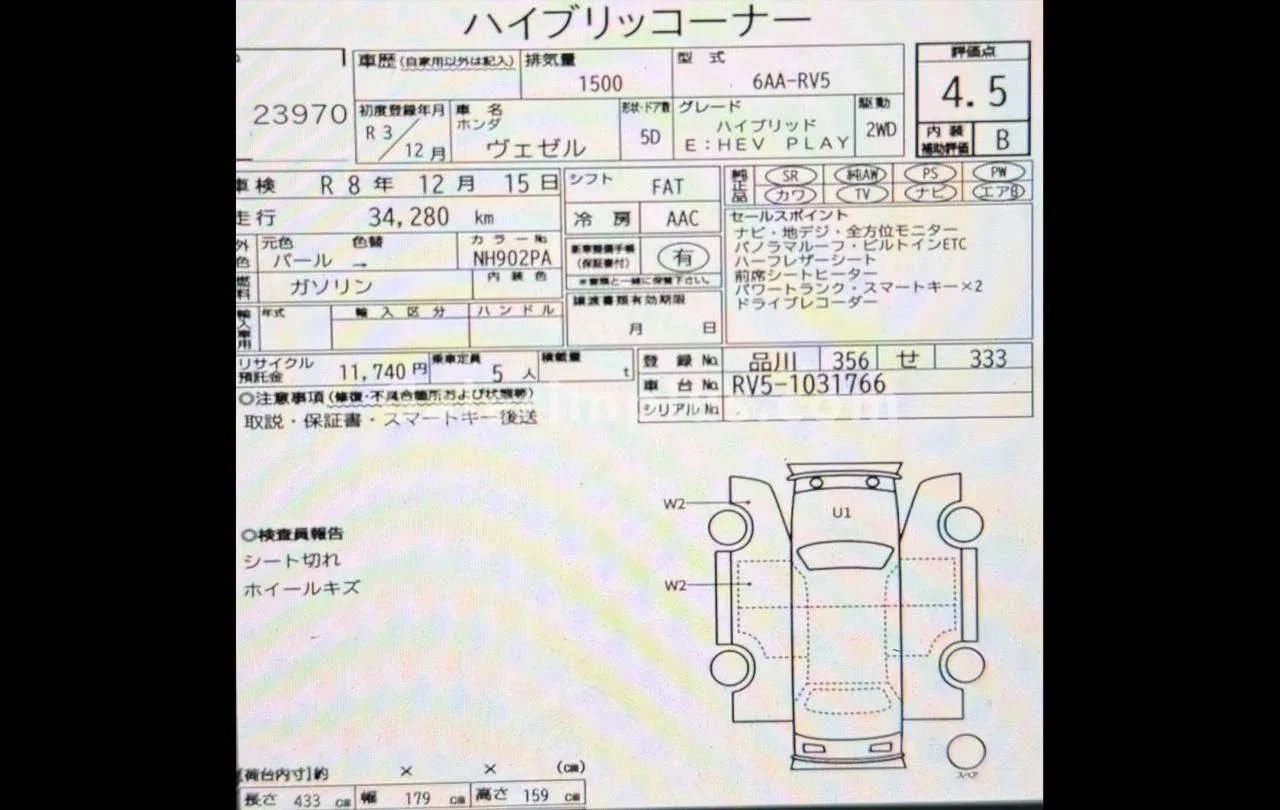 ハイブリッコーナー
車歴(自家用以外は記入) 排気量 型式 評価点
1500 6AA-RV5 4.5
23970
初度登録年月 車名 形状・ドア数 グレード 駆動
R3/12月 ホンダ ヴェゼル 5D ハイブリッド E:HEV PLAY 2WD
内装補助評価 B
車検 R8年 12月 15日 シフト FAT 純正品 SR 純AW PS PW
カワ TV ナビ エアB
走行 34,280 km 冷房 AAC
セールスポイント
ナビ・地デジ・全方位モニター
パノラマルーフ・ビルトインETC
ハーフレザーシート
前席シートヒーター
パワートランク・スマートキー×2
ドライブレコーダー
外色 元色 色替 カラーNo.
パール → NH902PA
新車整備手帳(保証書付) 有
※書類と一緒に保管下さい。
燃料 ガソリン 内装色
譲渡書類有効期限
月 日
輸入車用 年式 輸入区分 ハンドル
リサイクル預託金 11,740円 乗車定員 5人 積載量 t
登録No. 品川 356 せ 333
車台No. RV5-1031766
シリアルNo.
◎注意事項(修復・不具合箇所および状態等)
取説・保証書・スマートキー後送
W2
U1
◎検査員報告
シート切れ
W2
ホイールキズ
スペア
[荷台内寸]約 × × (cm)
長さ 433 cm 幅 179 cm 高さ 159 cm